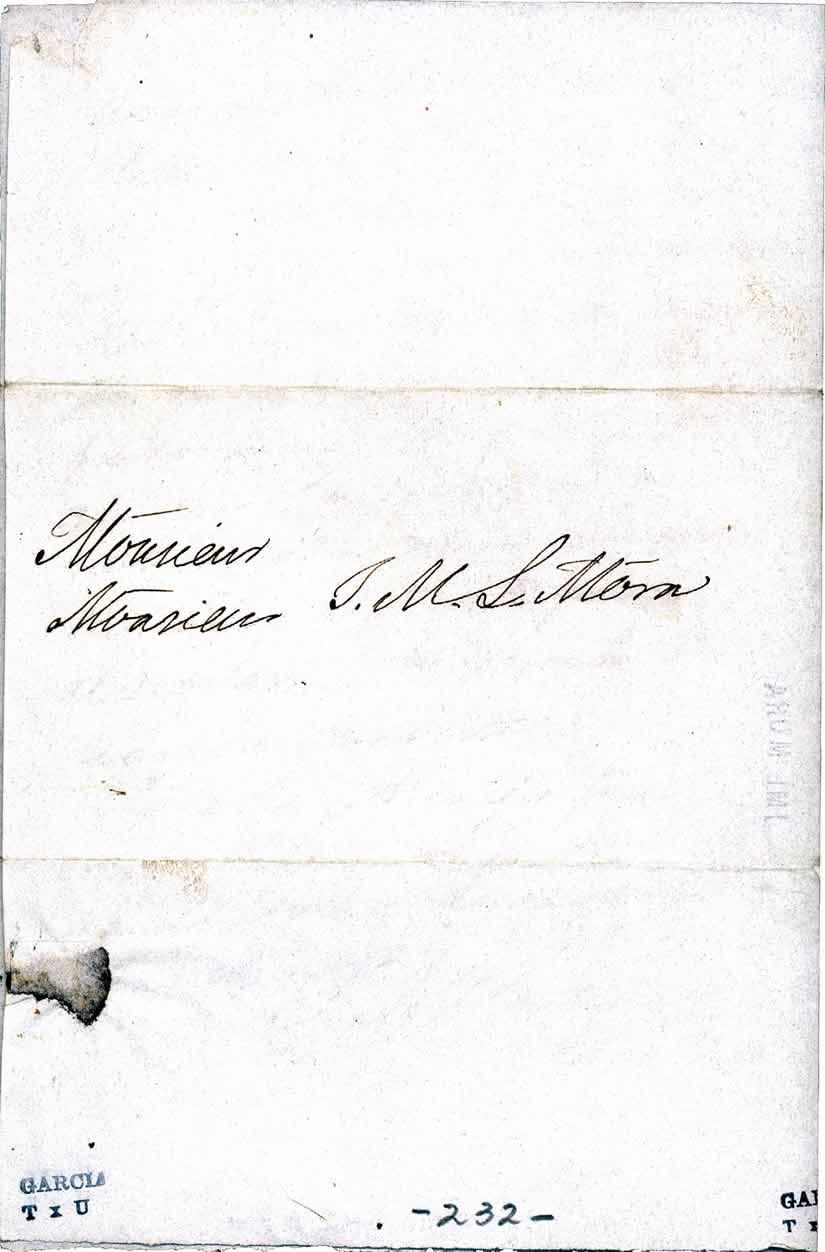 Monsieur
Monsieur J. M. L. Mora
JML MORA
GARCIA
T x U
-232-
GA
T x